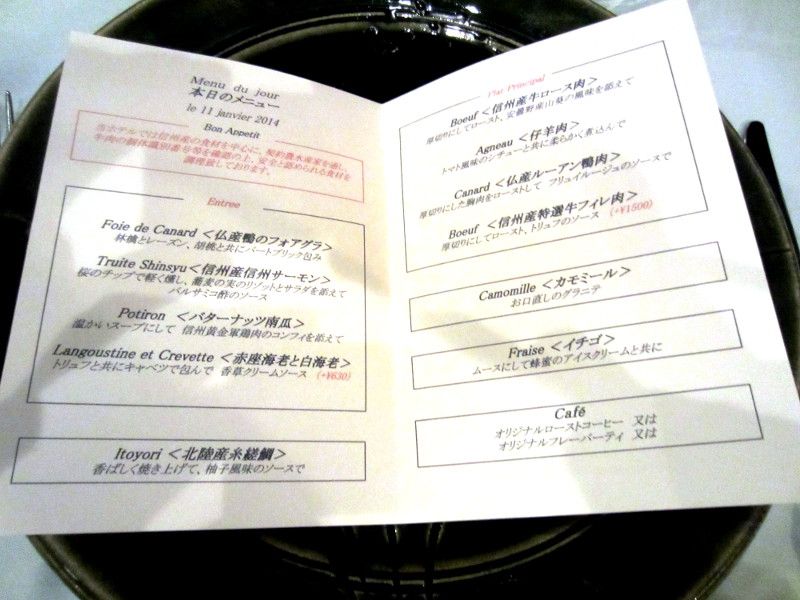 Menu du jour
本日のメニュー
le 11 janvier 2014
Bon Appetit
当ホテルでは信州産の食材を中心に、契約農水産家を通し、
牛肉の個体識別番号等を確認の上、安全と認められる食材を
調理致しております。
Entree
Foie de Canard ＜仏産鴨のフォアグラ＞
林檎とレーズン、胡桃と共にパートブリック包み
Truite Shinsyu＜信州産信州サーモン＞
桜のチップで軽く燻し、蕎麦の実のリゾットとサラダを添えて
バルサミコ酢のソース
Potiron ＜バターナッツ南瓜＞
温かいスープにして 信州黄金軍鶏肉のコンフィを添えて
Langoustine et Crevette ＜赤座海老と白海老＞
トリュフと共にキャベツで包んで 香草クリームソース (+¥630)
Itoyori ＜北陸産糸縒鯛＞
香ばしく焼き上げて、柚子風味のソースで
Plat Principal
Boeuf ＜信州産牛ロース肉＞
厚切りにしてロースト、安曇野産山葵の風味を添えて
Agneau ＜仔羊肉＞
トマト風味のシチューと共に柔らかく煮込んで
Canard ＜仏産ルーアン鴨肉＞
厚切りにした胸肉をローストして フリュイルージュのソースで
Boeuf ＜信州産特選牛フィレ肉＞
厚切りにしてロースト、トリュフのソース (+¥1500)
Camomille ＜カモミール＞
お口直しのグラニテ
Fraise ＜イチゴ＞
ムースにして蜂蜜のアイスクリームと共に
Café
オリジナルローストコーヒー 又は
オリジナルフレーバーティ 又は